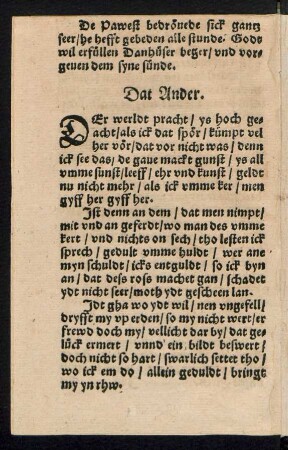 De Pawest bedröuede sick gantz
seer/he hefft gebeden alle stunde: Godt
wil erfüllen Danhüser beger/vnd vor-
geuen dem syne sünde.
Dat Ander.
DEr werldt pracht/ys hoch ge-
acht/als ick dat spör/kümpt vel
her vör/dat vor nicht was/denn
ick see das/de gaue mackt gunst/ys all
vmme sunst/leeff/ehr vnd kunst/geldt
nu nicht mehr/als ick vmme ker/men
gyff her gyff her.
Ist denn an dem/dat men nimpt/
mit vnd an geferdt/wo man des vmme
kert/vnd nichts on sech/tho lesten ick
sprech/gedult vmme huldt/wer ane
myn schuldt/icks entguldt/so ick byn
an/dat dess ross machet gan/schadet
ydt nicht seer/moth ydt gescheen lan.
Idt gha wo ydt wil/nen vngefell/
dryfft my vp erden/so my nicht wert/er
frewd doch my/vellicht dar by/dat ge-
lück ermert/vnnd ein bildt beswert/
doch nicht so hart/swarlich settet tho/
wo ick em do/allein geduldt/bringt
my yn rhw.